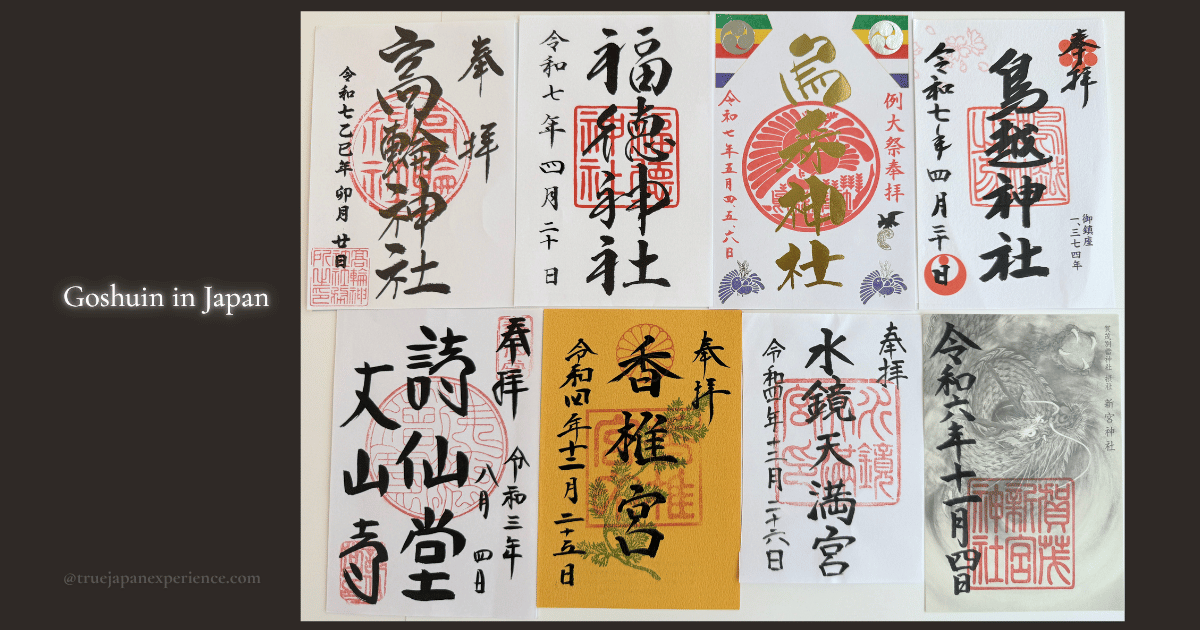 Goshuin in Japan
@truejapanexperience.com
奉拝
高輪神社
令和七乙巳年 卯月 廿日
高輪神社務所之印
福徳神社
令和七年四月二十日
例大祭奉拝
烏森神社
令和七年五月四、五、六日
奉拝
鳥越神社
御鎮座
一、三七四年
令和七年四月三十日
奉拝
令和三年
八月四日
詩仙堂
丈山寺
奉拝
香椎宮
令和四年十二月二十五日
奉拝
水鏡天満宮
令和四年十二月二十六日
賀茂別雷神社 摂社 新宮神社
令和六年十一月四日
賀茂
新宮
神社